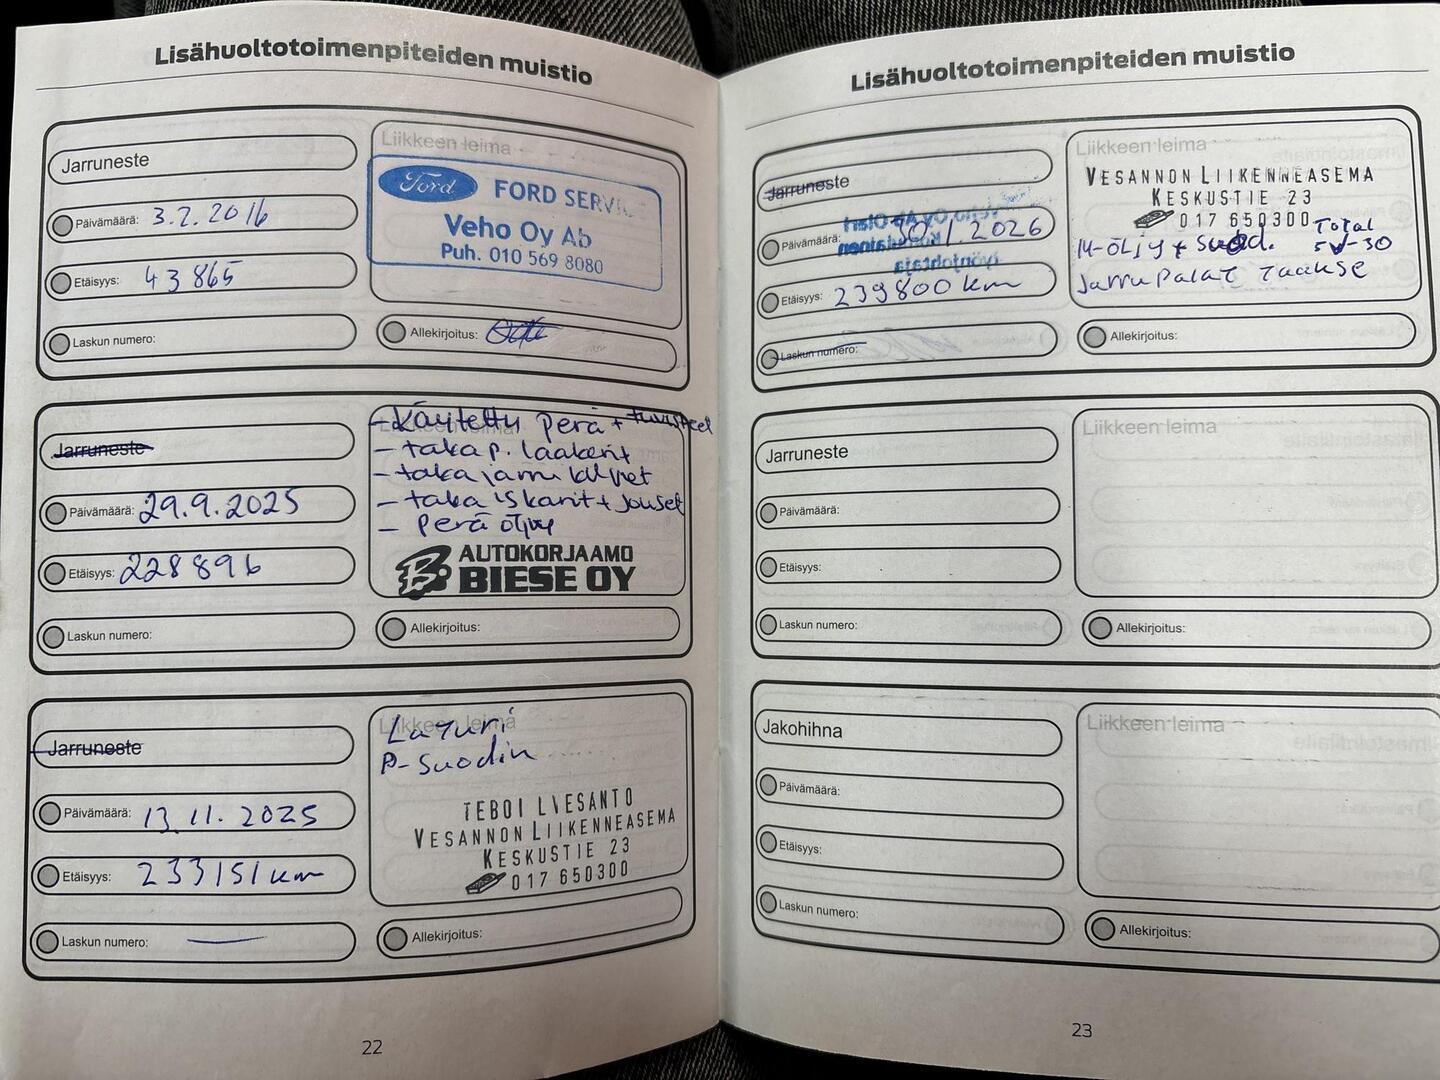 Lisähuoltotoimenpiteiden muistio
Jarruneste
Päivämäärä: 3.2.2016
Etäisyys: 43865
Laskun numero:
Liikkeen leima
Ford FORD SERVI
Veho Oy Ab
Puh. 010 569 8080
Allekirjoitus:
Jarruneste
Päivämäärä: 29.9.2025
Etäisyys: 228896
Laskun numero:
- Käytetty perä +
- taka p. laakerit
- taka jarru kilvet
- taka iskarit + jouset
- perä öljyt
AUTOKORJAAMO
BIESE OY
Allekirjoitus:
Jarruneste
Päivämäärä: 13.11.2025
Etäisyys: 233151 km
Laskun numero:
Liikkeen leima
Laturi
P-Suodin
VESANNON LIIKENNEASEMA
KESKUSTIE 23
017 650300
Allekirjoitus:
22
Lisähuoltotoimenpiteiden muistio
Jarruneste
Päivämäärä: 1.2026
Etäisyys: 239800 km
Laskun numero:
Liikkeen leima
VESANNON LIIKENNEASEMA
KESKUSTIE 23
017 650300 Total
M-öljy + Suod. 5W-30
Jarru Palat Taakse
Allekirjoitus:
Jarruneste
Päivämäärä:
Etäisyys:
Laskun numero:
Liikkeen leima
Allekirjoitus:
Jakohihna
Päivämäärä:
Etäisyys:
Laskun numero:
Liikkeen leima
Allekirjoitus:
23